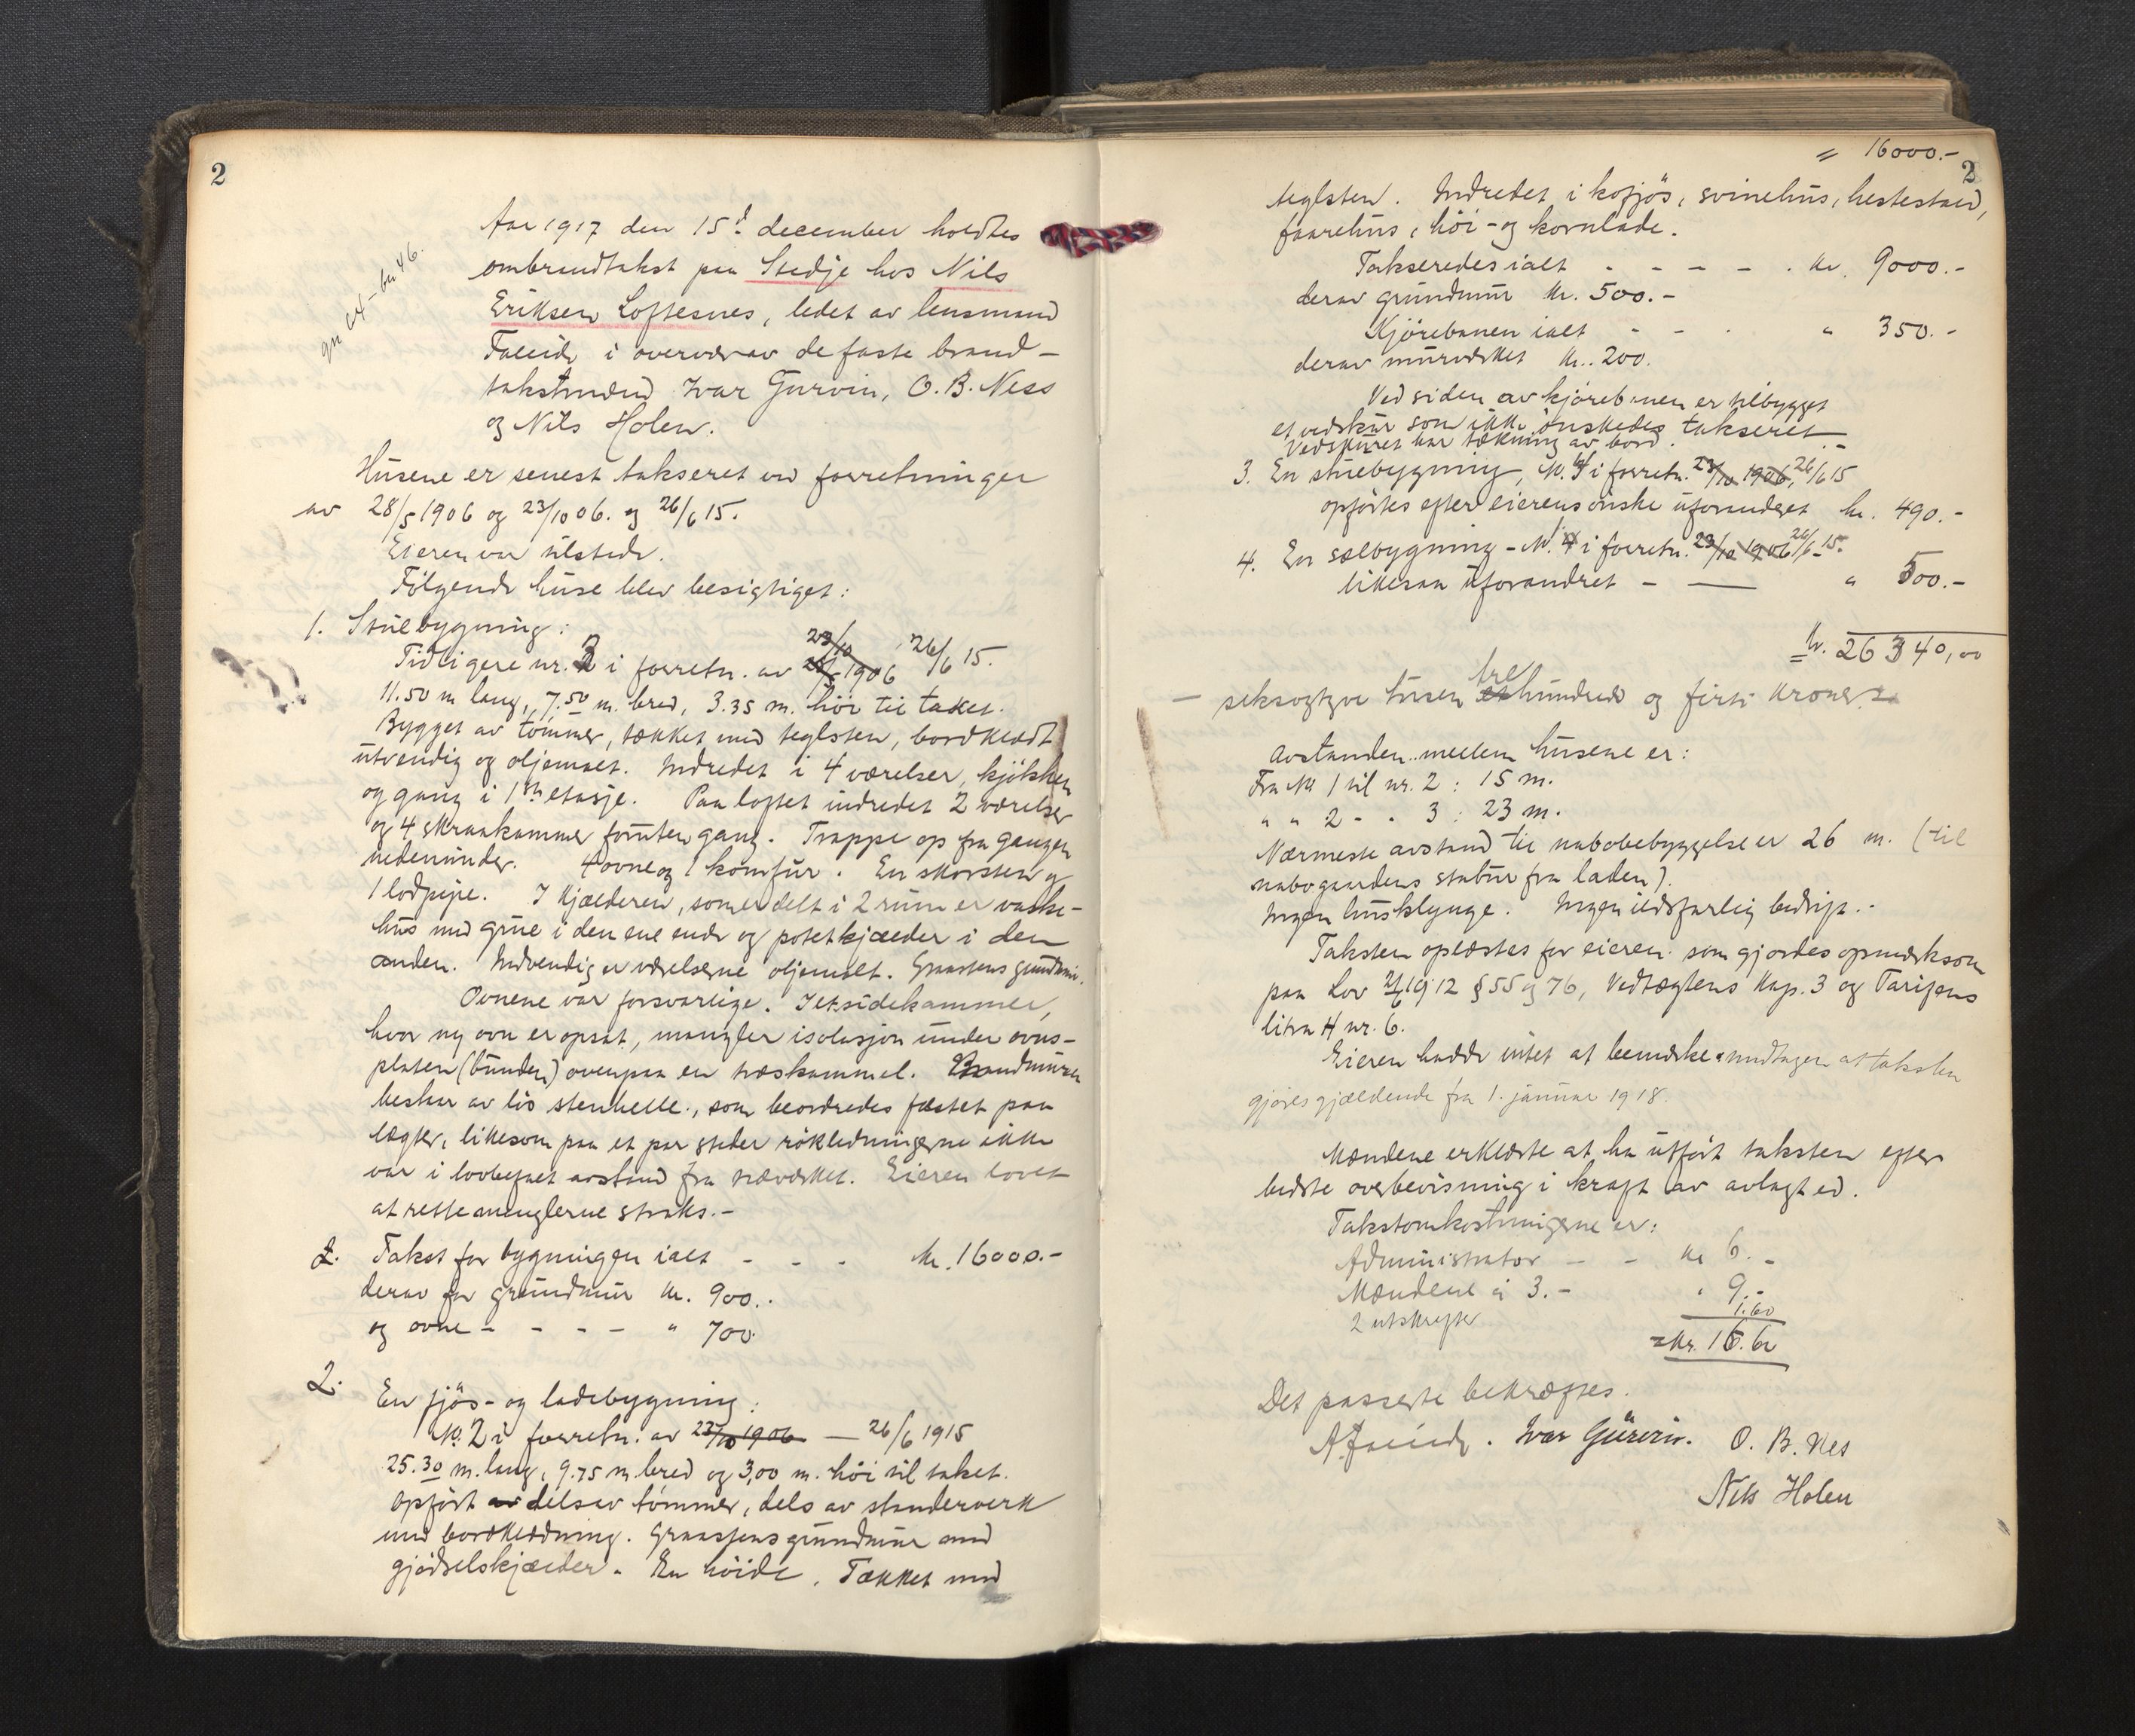 2
gn 64 - bn 46.
Aar 1917 den 15d december holdtes
ombrandtakst paa Stedje hos Nils
Eriksen Loftesnes, ledet av lensmand
Faleide i overvær av de faste brand-
takstmænd Ivar Gurvin, O. B. Ness
og Nils Holen.
Husene er senest takseret ved forretninger
av 28/5 1906 og 23/10 06. og 26/6 15.
Eieren var tilstede.
Følgende huse blev besigtiget:
1. Stuebygning:
Tidligere nr. 2 i forretn. av 23/10 1906 26/6 15.
11.50 m lang, 7.50 m. bred, 3.35 m. høi til taket.
Bygget av tømmer, tækket med teglsten, bordklædt
utvendig og oljemalt. Indredet i 4 værelser, kjøkken
og gang i 1ste etasje. Paa loftet indredet 2 værelser
og 4 skraakammer foruten gang. Trappe op fra gangen
nedenunder. 4 ovne og 1 komfur. En skorsten og
1 lodpipe. I kjælderen, som er delt i 2 rum er vaske-
hus med grue i den ene ende og potetkjælder i den
anden. Indvendig er værelserne oljemalt. Graastens grundmur.
Ovnene var forsvarlige. I et sidekammer,
hvor ny ovn er opsat, mangler isolasjon under ovns-
platen (bunden) ovenpaa en træskammel. Brandmuren
bestaar av løs stenhelle, som beordredes fæstet paa
lægter, likesom paa et par steder røkledningerne ikke
var i lovbefalet avstand fra træværket. Eieren lovet
at rette manglerne straks.-
2. Takst for bygningen ialt - - - kr. 16000.-
derav for grundmur kr. 900.-
og ovne - - - - " 700.
2. En fjøs- og ladebygning:
No. 2 i forretn. av 23/10 1906 - 26/6 1915
25.30 m. lang, 9.75 m. bred og 3,00 m. høi til taket.
Opført av dels av tømmer, dels av standerverk
med bordklædning. Graastens grundmur med
gjødselskjælder. En høide. Tækket med
= 16000.-
2
teglsten. Indredet i kofjøs, svinehus, hestestald,
faarehus, høi- og kornlade.
Takseredes ialt - - - - - kr. 9000.-
derav grundmur kr. 500.-
Kjørebanen ialt - - - " 350.-
derav murværket kr. 200.
Ved siden av kjørebanen er tilbygget
et vedskur som ikke ønskedes takseret.-
Vedskuret har tækning av bord.
3. En stuebygning, No. 4 i forretn. 23/10 1906, 26/6 15
opførtes efter eierens ønske uforandret kr. 490.-
4. En sælbygning - No. 4 i forretn. 23/10 1906 26/6 - 15.
likesaa uforandret - — " 500.-
kr. 26 340,00
— seksogtyve tusen tre hundrede og firti kroner.
Avstanden mellem husene er:
Fra No 1 til nr. 2 : 15 m.
" " 2 - " 3 : 23 m.
Nærmeste avstand til nabobebyggelse er 26 m. (til
nabogaardens stabur fra laden).
Ingen husklynge. Ingen ildsfarlig bedrift.-
Taksten oplæstes for eieren som gjordes opmerksom
paa Lov 21/6 1912 § 55 og 76, Vedtægtens Kap. 3 og Tarifens
litra H nr. 6.
Eieren hadde intet at bemerke undtagen at taksten
gjøres gjældende fra 1. januar 1918.
Mændene erklærte at ha utført taksten efter
bedste overbevisning i kraft av avlagt ed.
Takstomkostningerne er:
Administrator - - kr 6.-
Mændene à 3.- " 9.-
2 utskrifter 1.60
= kr. 16.60
Det passerte bekræftes.
A. Faleide. Ivar Gurvin. O. B. Nes
Nils Holen